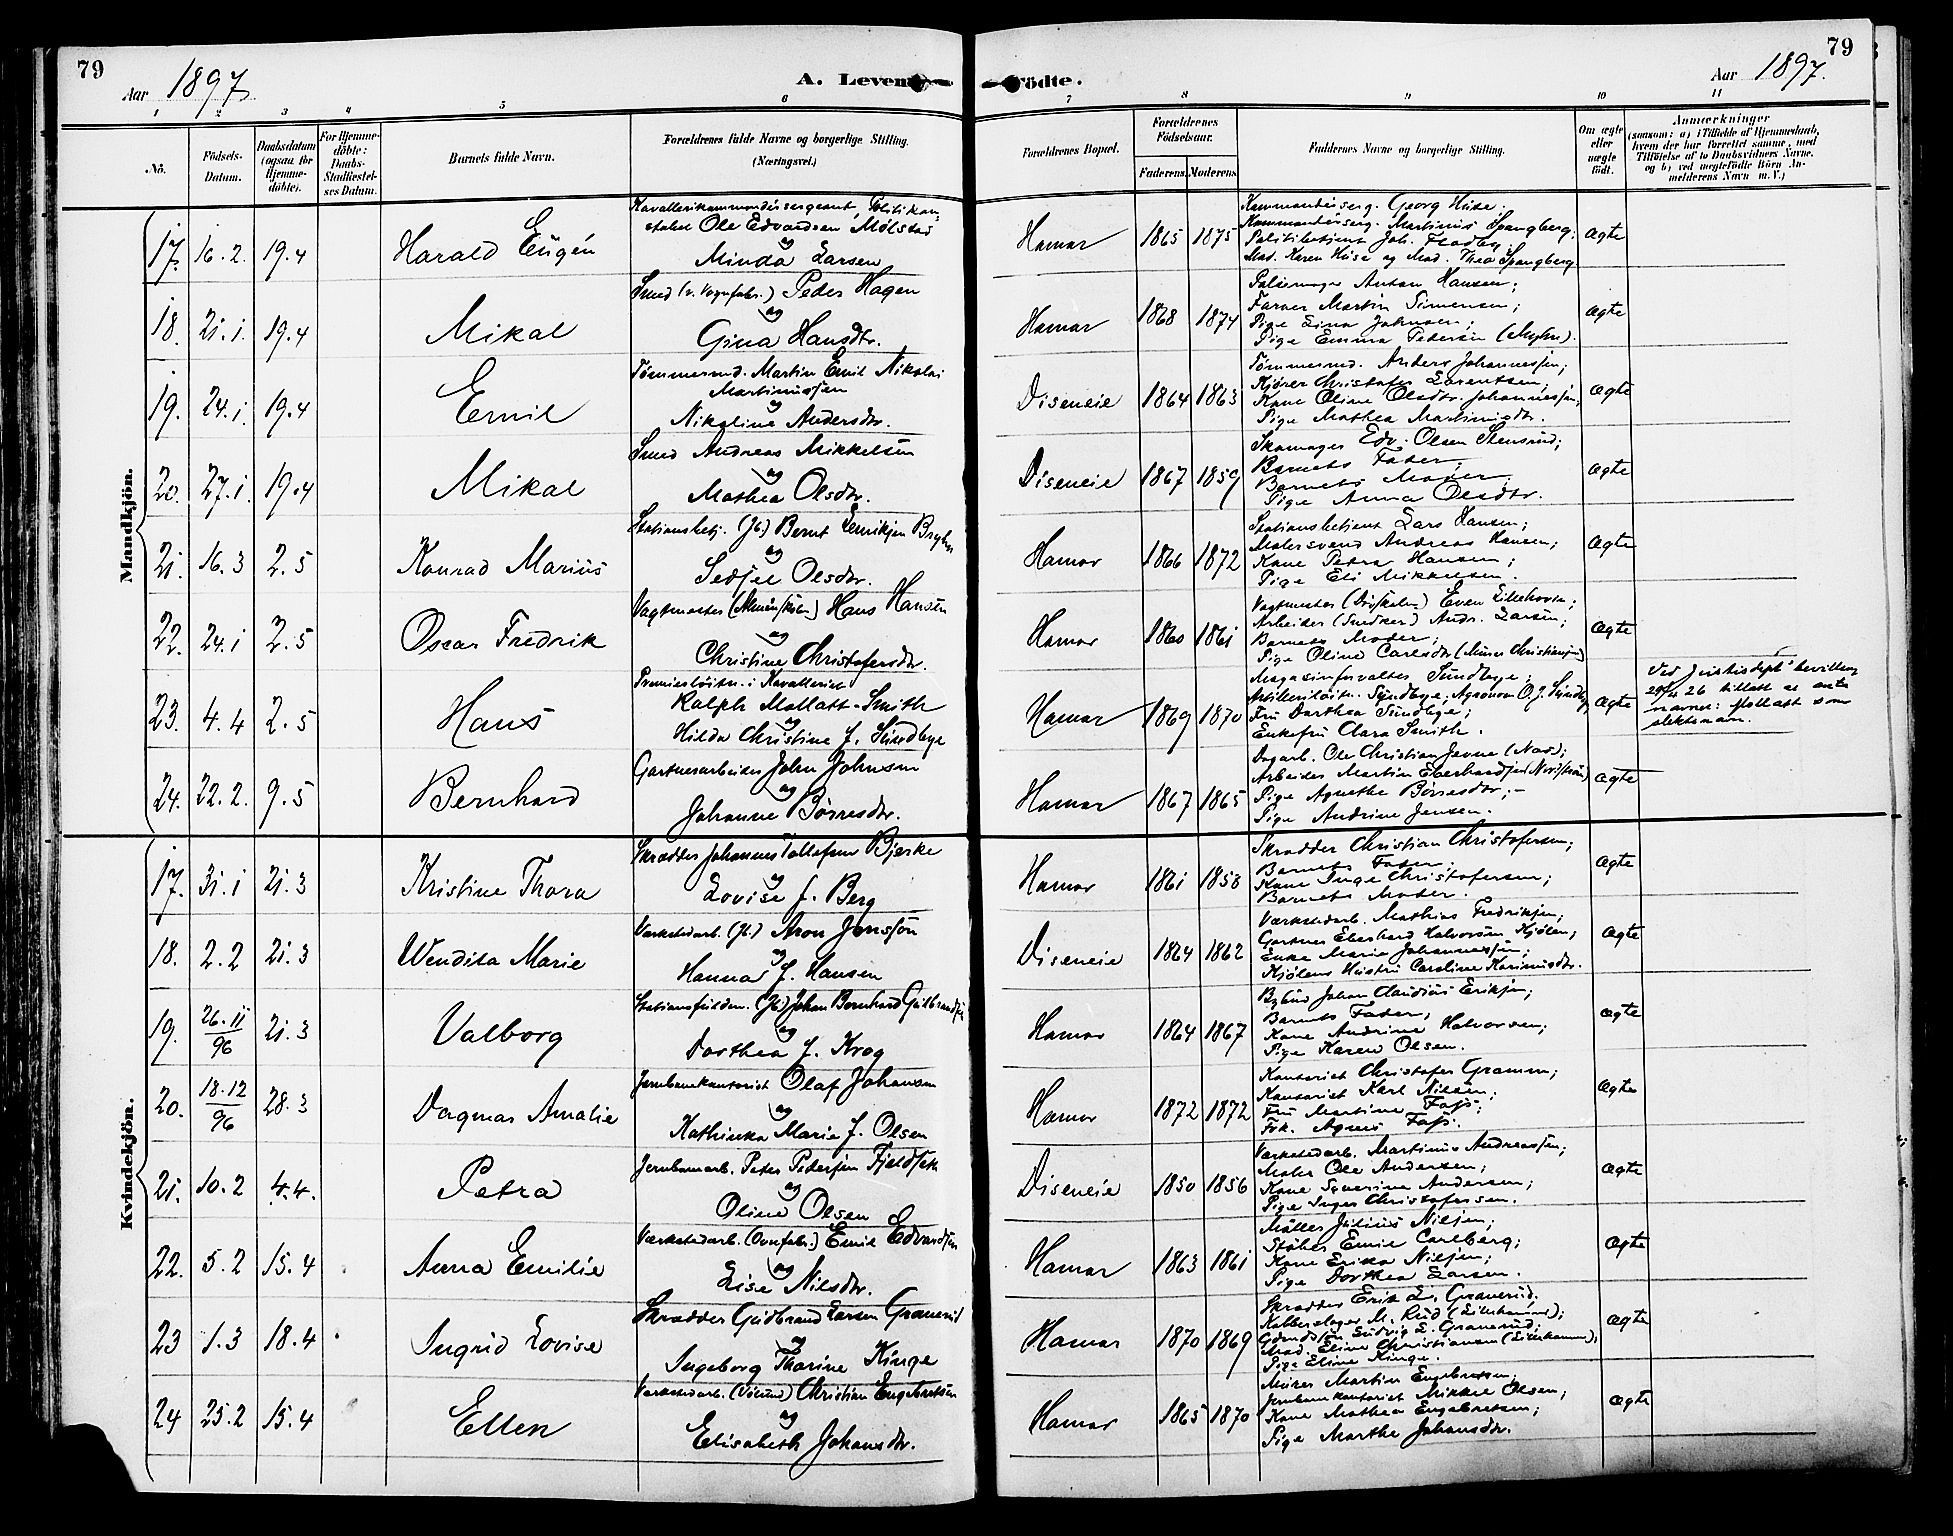 79
Aar 1897
A. Levende Fødte.
Aar 1897.
79
1 2 3 4 5 6 7 8 9 10 11
No.
Fødsels-Datum.
Daabsdatum (ogsaa for Hjemme-døbte).
For Hjemme-døbte: Daabs-Stadfæstel-ses Datum.
Barnets fulde Navn.
Forældrenes fulde Navne og borgerlige Stilling. (Næringsvei.)
Forældrenes Bopæl.
Forældrenes Fødselsaar.
Faderens. Moderens.
Faddernes Navne og borgerlige Stilling.
Om ægte eller uægte født.
Anmærkninger
(saasom: a) i Tilfælde af Hjemmedaab, hvem der har forrettet samme, med Tilføielse af to Daabsvidners Navne, og b) ved uægtefødte Børn Anmelderens Navn m. V.)
Mandkjøn.
17. 16.2. 19.4 Harald Eugén
Ole Edvardsen Mølstad
og
Minda Larsen
Hamar 1865 1875
Kommandersserg. Georg Huse.
Kommandersserg. Martinius Spangberg;
Politibetjent Joh. Flodby
Mad. Karen Huse og Mad. Thea Spangberg
Ægte
18. 21.1. 19.4 Mikal
Smed (v. Vognfabr.) Peder Hagen
og
Gina Hansdtr.
Hamar 1868 1874
Pølsemager Anton Hansen;
Farver Martin Simensen;
Pige Lina Johnsen;
Pige Emma Pedersen (Myhr).
Ægte
19. 24.1. 19.4 Emil
Tømmermd. Martin Emil Nikolai
Martinussen
og
Nikoline Andersdtr.
Diseneie 1864 1863
Tømmermd. Anders Johannessen;
Kjører Christofer Lorentsen;
Kone Oline Olsdtr. Johannessen;
Pige Mathea Martinusdtr.
Ægte
20. 27.1. 19.4 Mikal
Smed Andreas Mikkelsen
og
Mathea Olsdtr.
Diseneie 1867 1859
Skomager Edv. Olsen Stensrud;
Barnets Fader;
Barnets Moder;
Pige Anna Olsdtr.
Ægte
21. 16.3 2.5 Konrad Marius
Stationsbetj. (Jb.) Bernt Henriksen
og
Sedsel Olsdtr.
Hamar 1866 1872
Stationsbetjent Lars Hansen;
Malersvend Andreas Hansen;
Kone Petra Hansen;
Pige Eli Mikkelsen.
Ægte
22. 24.1 2.5 Oscar Fredrik
Vagtmester Hans Hansen
og
Christine Christofersdtr.
Hamar 1860 1861
Vagtmester Even Lillehovin;
Arbeider Andr. Larsen;
Barnets Moder;
Pige Oline Carlsdtr
Ægte
23. 4.4 2.5 Hans
Premierløitn. i Kavalleriet
Ralph Mollatt-Smith
og
Hilda Christine f. Sundbye
Hamar 1869 1870
Magasinforvalter Sundbye;
Artilleriløitn. Sundbye, Agronom O. J. Sundby
Fru Dorthea Sundbye;
Enkefru Clara Smith.
Ægte
Ved Justisdept's bevilling
26 tillatt at anta
navnet: Mollatt som
slektsnavn.
24. 22.2. 9.5 Bernhard
Gartnerarbeider John Johnsen
og
Johanne Børresdtr.
Hamar 1867 1865
Dagarb. Ole Christian Jevne (Næs);
Arbeider Martin Eberhardsen
Pige Agnethe Børresdtr;
Pige Andrine Jensen.
Ægte
Kvindekjøn.
17. 31.1 21.3 Kristine Thora
Skrædder Johannes Tollefsen Bjerke
og
Lovise f. Berg
Hamar 1861 1858
Skrædder Christian Christofersen;
Barnets Fader;
Kone Inge Christofersen;
Barnets Moder.
Ægte
18. 2.2 21.3 Wendila Marie
Værkstedarb. (Jb.) Aron Jonsson
og
Hanna f. Hansen
Diseneie 1864 1862
Værkstedarb. Mathias Fredriksen;
Gartner Eberhard Halvorsen Kjølen;
Enke Marie Johannessen;
Kjølens Hustru Caroline Karinusdtr.
Ægte
19. 26.11/96 21.3 Valborg
Stationsfuldm. (Jb.) Johan Bernhard Gulbrandsen
og
Dorthea f. Krog
Hamar 1864 1867
Bybud Johan Claudius Eriksen;
Barnets Fader;
Kone Andrine Halvorsen;
Pige Karen Olsen.
Ægte
20. 18.12/96 28.3 Dagmar Amalie
Jernbanekontorist Olaf Johansen
og
Kathinka Marie f. Olsen
Hamar 1872 1872
Kontorist Christofer Gramm;
Kontorist Karl Nilsen;
Fru Martine Foss;
Frk. Agnes Foss.
Ægte
21. 10.2 4.4. Petra
Jernbanearb. Peter Pedersen Fjeldsek
og
Oline Olsen
Diseneie 1850 1856
Værkstedarb. Martinus Andreassen;
Maler Ole Andersen;
Kone Severine Andersen;
Pige Inger Christofersen.
Ægte
22. 5.2 15.4 Anna Emilie
Værkstedarb. (Ovnfabr.) Emil Edvardsen
og
Lise Nilsdtr.
Hamar 1863 1861
Møller Julius Nilsen;
Støber Emil Carlberg;
Kone Erika Nilsen;
Pige Dorthea Larsen.
Ægte
23 1.3 18.4 Ingrid Lovise
Skrædder Gudbrand Larsen Granerud
og
Ingeborg Thorine Kinge
Hamar 1870 1869
Skrædder Erik L. Granerud;
Kobberslager M. Rud (Lillehammer);
Ludvig L. Granerud;
Mad. Eline Christiansen (Lillehammer);
Pige Eline Kinge.
Ægte
24 25.2 15.4 Ellen
Værkstedarb. Christian Engebretsen
og
Elisabeth Johansdtr.
Hamar 1865 1870
Murer Martin Engebretsen;
Jernbanekontorist Mikkel Olsen;
Kone Mathea Engebretsen;
Pige Marthe Johansdtr.
Ægte